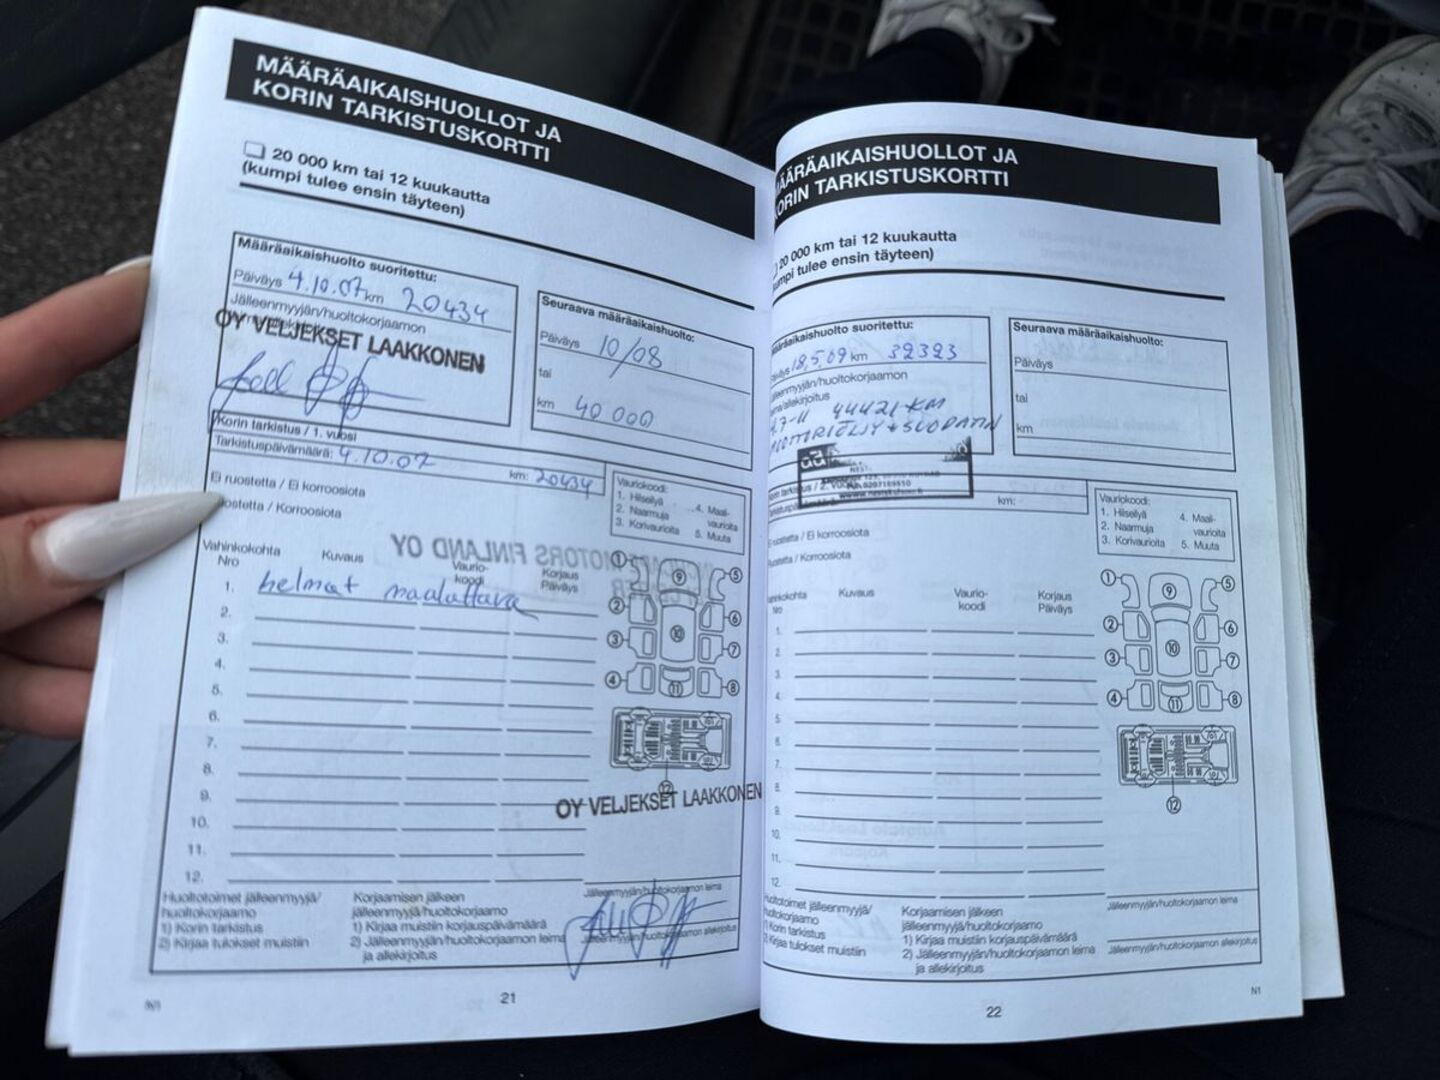 MÄÄRÄAIKAISHUOLLOT JA
KORIN TARKISTUSKORTTI
20 000 km tai 12 kuukautta
(kumpi tulee ensin täyteen)
Määräaikaishuolto suoritettu:
Päiväys 4.10.07 km 20434
Jälleenmyyjän/huoltokorjaamon
OY VELJEKSET LAAKKONEN
Seuraava määräaikaishuolto:
Päiväys 10/08
tai
km 40 000
Korin tarkistus / 1. vuosi
Tarkistuspäivämäärä: 4.10.07 km: 20434
Ei ruostetta / Ei korroosiota
ostetta / Korroosiota
Vauriokoodi:
1. Hilseilyä
2. Naarmuja
3. Korivaurioita
4. Maali-
vaurioita
5. Muuta
Vahinkokohta
Nro
Kuvaus
Vaurio-
koodi
Korjaus
Päiväys
1. helmat maalattava
2.
3.
4.
5.
6.
7.
8.
9.
10.
11.
12.
1
2
3
4
5
6
7
8
9
10
11
12
OY VELJEKSET LAAKKONEN
Huoltotoimet jälleenmyyjä/
huoltokorjaamo
1) Korin tarkistus
2) Kirjaa tulokset muistiin
Korjaamisen jälkeen
jälleenmyyjä/huoltokorjaamo
1) Kirjaa muistiin korjauspäivämäärä
2) Jälleenmyyjän/huoltokorjaamon leima
ja allekirjoitus
Jälleenmyyjän/huoltokorjaamon leima
Jälleenmyyjän/huoltokorjaamon allekirjoitus
21
ÄÄRÄAIKAISHUOLLOT JA
ORIN TARKISTUSKORTTI
20 000 km tai 12 kuukautta
kumpi tulee ensin täyteen)
Määräaikaishuolto suoritettu:
Päiväys 18.5.09 km 32323
Jälleenmyyjän/huoltokorjaamon
nimi/allekirjoitus
44421 KM
MOOTTORIÖLJY + SUODATIN
Seuraava määräaikaishuolto:
Päiväys
tai
km
Korin tarkistus / 2. vuosi
km:
Ei ruostetta / Ei korroosiota
Ruostetta / Korroosiota
Vauriokoodi:
1. Hilseilyä
2. Naarmuja
3. Korivaurioita
4. Maali-
vaurioita
5. Muuta
Vahinkokohta
Nro
Kuvaus
Vaurio-
koodi
Korjaus
Päiväys
1.
2.
3.
4.
5.
6.
7.
8.
9.
10.
11.
12.
1
2
3
4
5
6
7
8
9
10
11
12
Huoltotoimet jälleenmyyjä/
huoltokorjaamo
1) Korin tarkistus
2) Kirjaa tulokset muistiin
Korjaamisen jälkeen
jälleenmyyjä/huoltokorjaamo
1) Kirjaa muistiin korjauspäivämäärä
2) Jälleenmyyjän/huoltokorjaamon leima
ja allekirjoitus
Jälleenmyyjän/huoltokorjaamon leima
Jälleenmyyjän/huoltokorjaamon allekirjoitus
22
N1